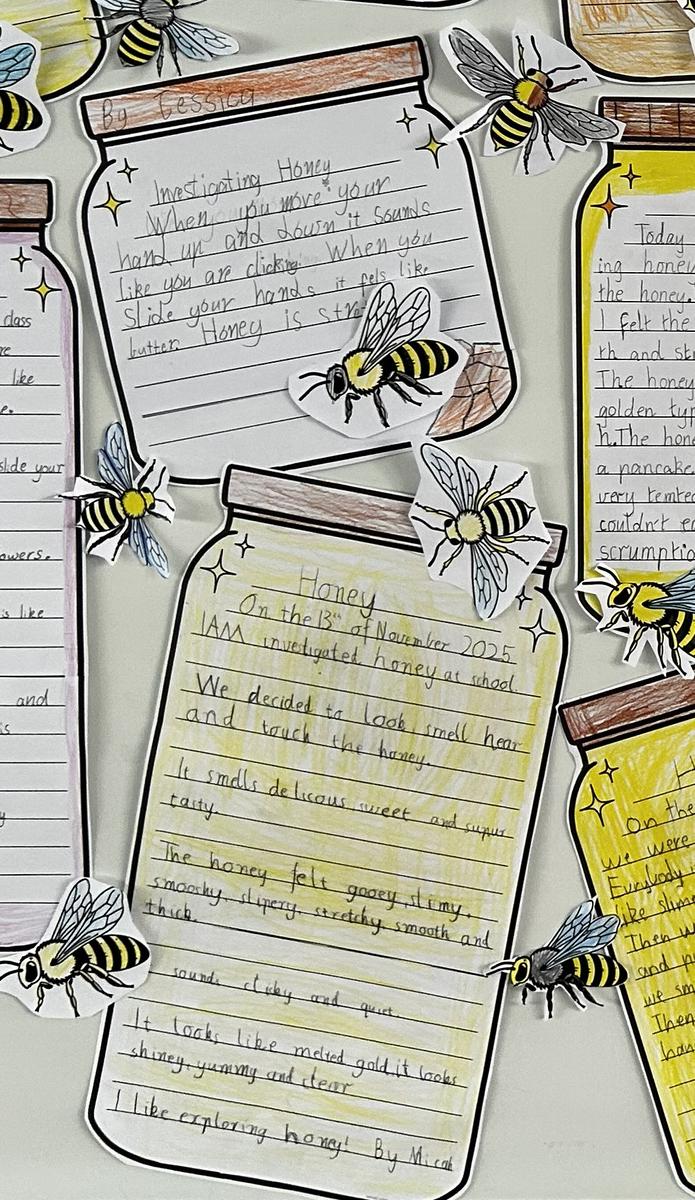 By Gessica
Investigating Honey
When you move your
hand up and down it sounds
like you are clicking. When you
Slide your hands it fels like
butter. Honey is
class
like
slide your
owers.
is like
and
Today
ing honey
the honey.
I felt the
th and
The honey
golden
h.The
a pancake
very
couldn't
scrumptio
Honey
On the 13th of November 2025
1AM investigated honey at school.
We decided to look, smell hear
and touch the honey.
It smells delicous, sweet and supur
tasty.
The honey felt gooey, slimy,
smooshy, slipery, stretchy, smooth and
thick.
sounds clicky and quiet.
It looks like melted gold, it looks
shiney, yummy and clear
I like exploring honey! By Micah
On the
we were
Everybody
like slim
Then w
and
we sm
Then